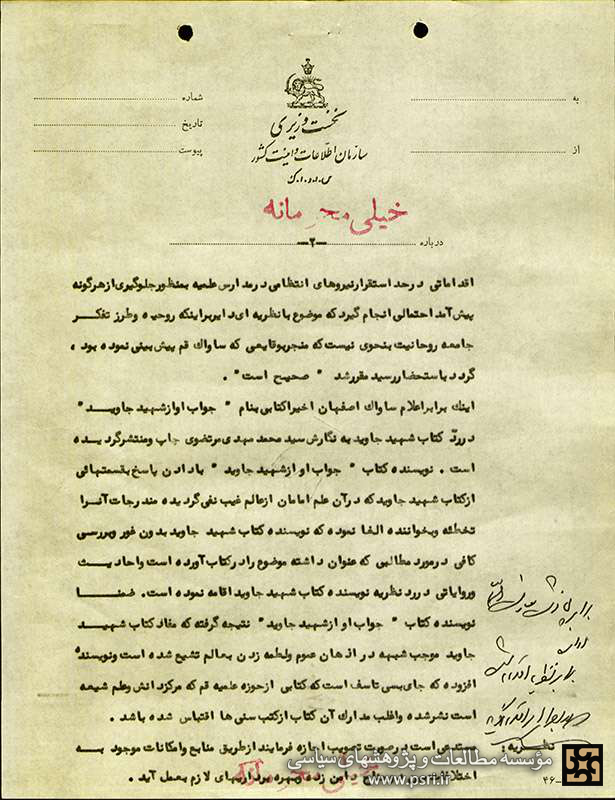 شماره
تاریخ
پیوست
به
از
نخست وزیری
سازمان اطلاعات و امنیت کشور
س.ا.و.ا.ک
خیلی محرمانه
درباره
-۲-
اقداماتی در حد استقرار نیروهای انتظامی در مدارس علمیه بمنظور جلوگیری از هرگونه
پیش آمد احتمالی انجام گیرد که موضوع با نظریه ای دایر براینکه روحیه و طرز تفکر
جامعه روحانیت بنحوی نیست که منجر بوقایعی که ساواک قم پیش بینی نموده بود،
گردد باستحضار رسید مقرر شد " صحیح است " .
اینک برابر اعلام ساواک اصفهان اخیرا کتابی بنام " جواب او از شهید جاوید "
در رد کتاب شهید جاوید به نگارش سید محمد مهدی مرتضوی چاپ و منتشر گردیده
است . نویسنده کتاب " جواب او از شهید جاوید " با دادن پاسخ بقسمتهائی
از کتاب شهید جاوید که در آن علم امامان از عالم غیب نفی گردیده مندرجات آنرا
تخطئه و بخواننده القا نموده که نویسنده کتاب شهید جاوید بدون غور و بررسی
کافی در مورد مطالبی که عنوان داشته موضوع را در کتاب آورده است و احادیث
و روایاتی در رد نظریه نویسنده کتاب شهید جاوید اقامه نموده است . ضمنا
نویسنده کتاب " جواب او از شهید جاوید " نتیجه گرفته که مفاد کتاب شهید
جاوید موجب شبهه در اذهان عموم و لطمه زدن بعالم تشیع شده است و نویسنده
افزوده که جای بسی تاسف است که کتابی از حوزه علمیه قم که مرکز دانش و علم شیعه
است نشر شده و اغلب مدارک آن کتاب از کتب سنی ها اقتباس شده باشد .
نظریه :
مستدعی است در صورت تصویب اجازه فرمایند از طریق منابع و امکانات موجود به
اختلافات دامن زده و بهره برداریهای لازم بعمل آید .
خیلی محرمانه
مؤسسه مطالعات و پژوهشهای سیاسی
www.psri.ir